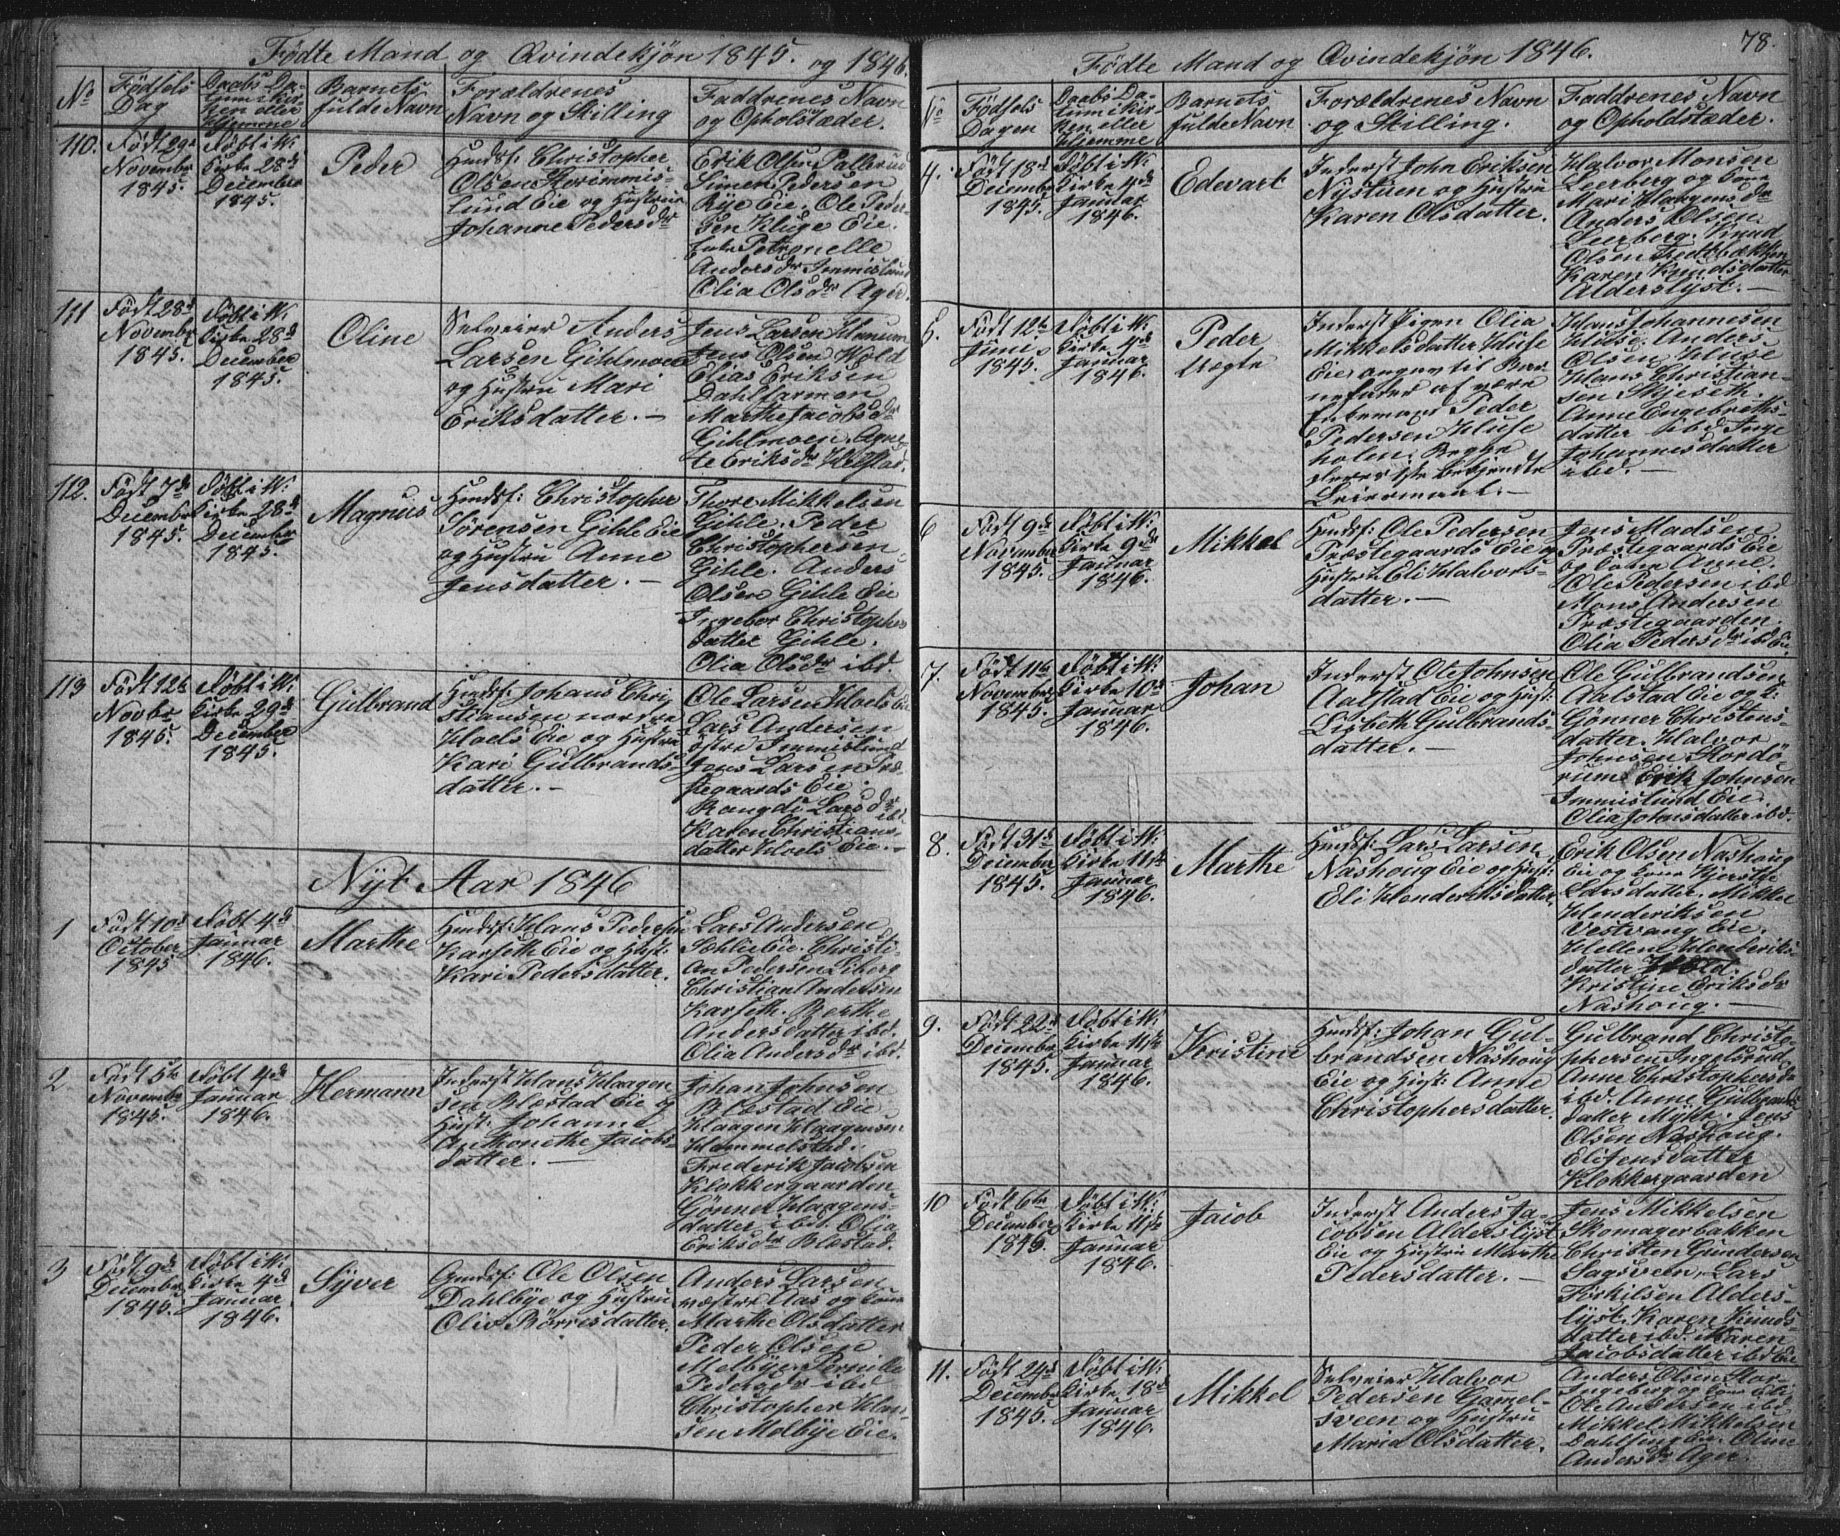 Fødte Mand og Qvindekjøn 1845. og 1846.
No
Fødsels Dag
Daabs Da-
tum i Kir-
ken eller
Hjemme
Barnets
fulde Navn
Forældrenes
Navn og Stilling
Faddrenes Navn
og Opholstæder.
110.
Født 29de
November
1845.
Døbt i V:
Kirke 28de
December
1845.
Peder
Huusf: Christopher
Olsen
lund Eie og Hustrue
Johanne Pedersdr
Erik Olsen
Simen Pedersen
Rye Eie. Ole Peder-
sen Kluge Eie.
Enke Petronelle
Andersdr Immislund
Olia Olsdr Ager.
111
Født 28d
November
1845.
Døbt i V:
Kirke 28d
December
1845.
Oline
Selveier Anders
Larsen Gihlmoen
og Hustru Mari
Eriksdatter. –
Jens Larsen
Jens Olsen Hold
Elias Eriksen
Dahlfarmen
Marthe Jacobsdr
Gihlmoen. Agne-
te Eriksdr
112.
Født 7de
December
1845.
Døbt i V:
Kirke 28d
December
1845.
Magnus
Huusf: Christopher
Sørensen Gihle Eie
og Hustru Anne
Jensdatter. –
Thore Mikkelsen
Gihle. Peder
Christophersen
Gihle. Anders
Olsen Gihle Eie
Ingebor Christophers
datter Gihle.
Olia Olsdr ibd.
113
Født 12te
Novbr
1845.
Døbt i V:
Kirke 29d
December
1845.
Gulbrand
Huusf: Johans Chri
stiansen norske
Hoels Eie og Hustru
Kari Gulbrands-
datter. –
Ole Larsen Hoels Eie
Lars Andersen
østre Immislund
Jens Larsen Præ-
stegaards Eie
Rangdi Larsdr ibd
Karen Christians-
datter Hoels Eie. –
Nyt Aar 1846
1
Født 10d
October
1845
Døbt 4de
Januar
1846.
Marthe
Huusf: Hans Pedersen
Karseth Eie og Hust:
Kari Pedersdatter.
Lars Andersen
Sæhlie Eie. Christi-
an Pedersen Liberg
Christian Andersen
Karseth. Berthe
Andersdatter ibd.
Olia Andersdr ibd.
2
Født 5te
November
1845.
Døbt 4de
Januar
1846.
Hermann
Inderst Hans Haagen
sen Blæstad Eie og
Hust: Johanne
Anthonethe Jacobs-
datter. –
Johan Johnsen
Blæstad Eie.
Haagen Haagensen
Hommelstad.
Frederik Jacobsen
Klokkergaarden
Gønner Haagens-
datter ibd. Olia
Eriksdr Blæstad.
3
Født 9de
December
1845.
Døbt i V:
Kirke 4d
Januar
1846.
Syver
Gaardf: Ole Olsen
Dahlbye og Hustru
Olia Børresdatter.
Anders Larsen
vestre Aas og kone
Marthe Olsdatter
Peder Olsen
Melbye. Pernille
Pedersdr ibd
Christopher Han-
sen Melbye Eie.
78.
Fødte Mand og Qvindekjøn 1846.
No
Fødsels
Dagen
Daabs Da-
tum i Kir-
ken eller
Hjemme
Barnets
fulde Navn
Forældrenes Navn
og Stilling.
Faddrenes Navn
og Opholdstæder.
4.
Født 18d
December
1845.
Døbt i V:
Kirke 4d
Januar
1846.
Edevart
Inderst John Eriksen
Nystuen og Hustru
Karen Olsdatter.
Halvor Monsen
Leerberg og kone
Mari Haagensdr
Anders Olsen
Leerberg. Knud
Olsen
Karen Knudsdatter
Alderslyst. –
5.
Født 12te
Juni
1845.
Døbt i V:
Kirke 4d
Januar
1846.
Peder
Uægte
Inderst Pigen Olia
Mikkelsdatter Huse
Eie, angav til Bar-
nefader at være
Enkemand Peder
Pedersen Huse-
holen. Begge
deres 1ste begjendte
Leiermaal. –
Hans Johannesen
Huse. Anders
Olsen Huse
Hans Christian-
sen Skjeseth.
Anne Engebreths-
datter ibd. Inge
Johannesdatter
ibd. –
6
Født 9d
November
1845.
Døbt i V:
Kirke 9de
Januar
1846.
Mikkel
Huusf: Ole Pedersen
Præstegaards Eie og
Hustru Eli Halvors-
datter. –
Jens Madsen
Præstegaards Eie
og kone Anne.
Ole Pedersen ibd
Mons Andersen
Præstegaarden.
Olia Pedersdr ibd Eie
7.
Født 11te
November
1845.
Døbt i V:
Kirke 10d
Januar
1846.
Johan
Inderst Ole Johnsen
Aalstad Eie og Hust:
Lisbeth Gulbrands-
datter. –
Ole Gulbrandsen
Aalstad Eie og k:
Gønner Christens-
datter. Halvor
Johnsen Stordø-
rum. Erik Johnsen
Immislund Eie.
Olia Johnsdatter ibd.
8.
Født 31d
December
1845.
Døbt i V:
Kirke 11te
Januar
1846.
Marthe
Huusf: Lars Larsen
Nashoug Eie og Hust:
Eli Henderiksdatter.
Erik Olsen Nashoug
Eie og kone Kjersthe
Larsdatter. Mikkel
Henderiksen
Vestvang Eie.
Hellene Henderiks-
datter Hold.
Kristine Eriksdr
Nashoug. –
9.
Født 22d
December
1845.
Døbt i V:
Kirke 11te
Januar
1846.
Kristine
Huusf: Johan Gul-
brandsen Nashoug
Eie og Hust: Anne
Christophersdatter.
Gulbrand Christo-
phersen Ingelsrud
Anne Christophersdr
ibd. Anne Gulbrands
datter Mykl. Jens
Olsen Nashoug.
Eli Jensdatter
Klokkergaarden
10
Født 6te
December
1845.
Døbt i V:
Kirke 11te
Januar
1846.
Jacob
Inderst Anders Ja-
cobsen Alderslyst
Eie og Hustru Marthe
Pedersdatter. –
Jens Mikkelsen
Skomagerbakken
Christen Gundersen
Sagsveen. Lars
Torkilsen Alders-
lyst. Karen Knuds-
datter ibd. Maren
Jacobsdatter ibd Eie
11.
Født 24d
December
1845.
Døbt i V:
Kirke 18d
Januar
1846.
Mikkel
Selveier Halvor
Pedersen Gamel-
sveen og Hustru
Maria Olsdatter.
Anders Olsen Stor-
Ingeberg og kone Eli
Ole Andersen ibd.
Mikkel Mikkelsen
Dahlseng Eie. Oline
Andersdr Ager.